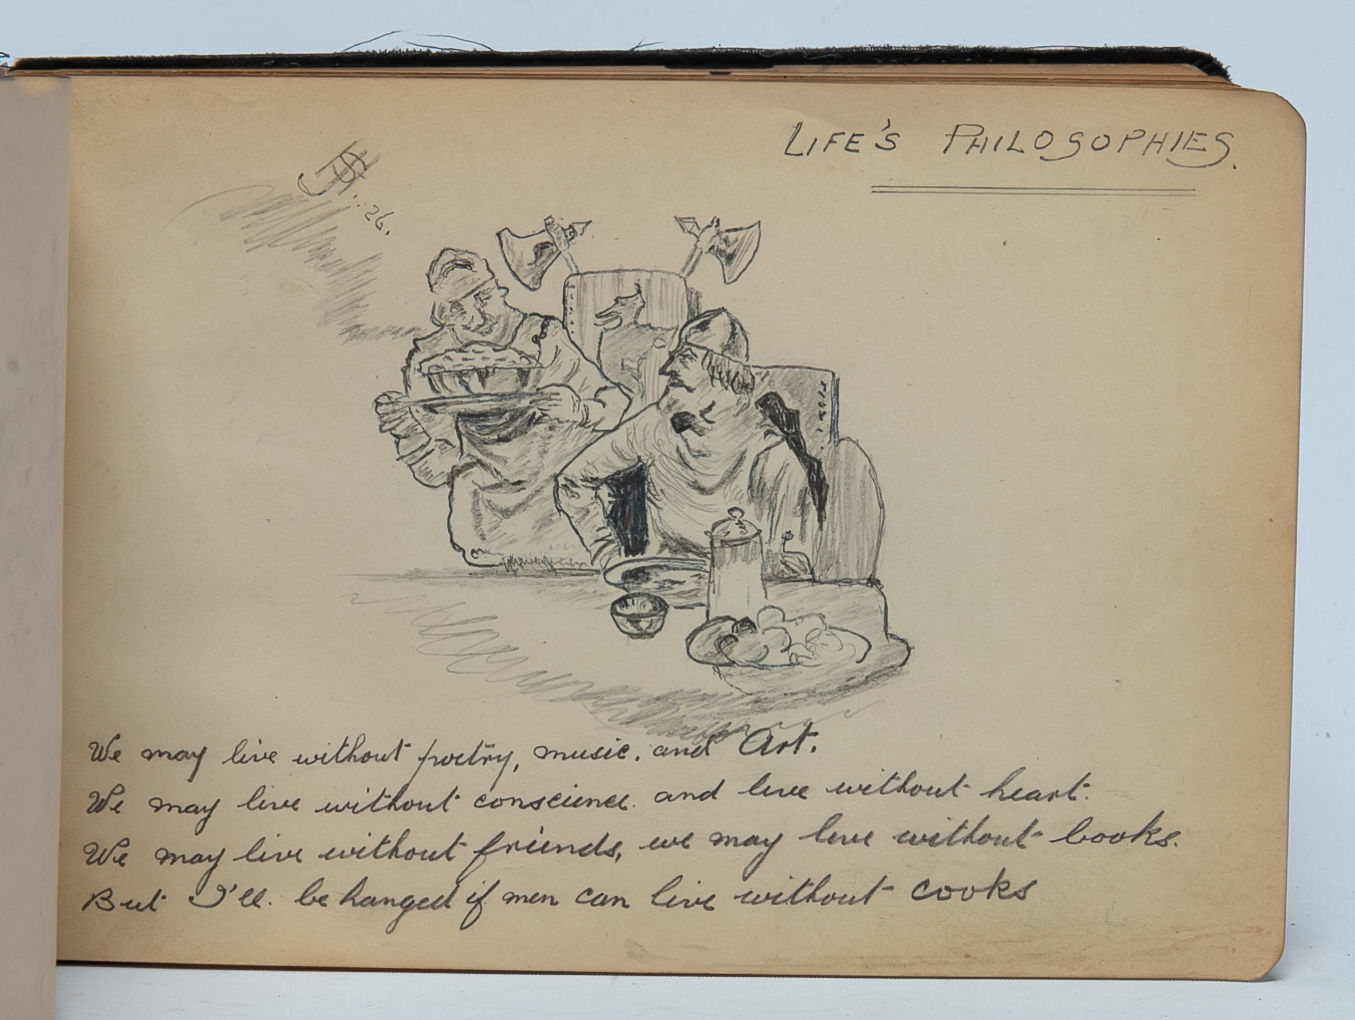 LIFE'S PHILOSOPHIES.
26.
We may live without poetry, music, and Art.
We may live without conscience. and live without heart.
We may live without friends, we may live without books.
But I'll. be hanged if men can live without cooks